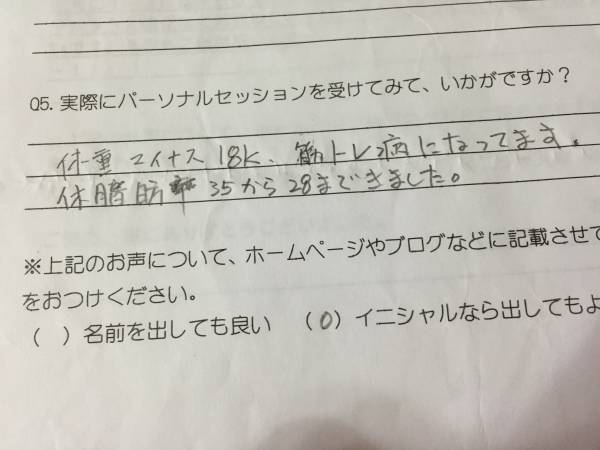 Q5. 実際にパーソナルセッションを受けてみて、いかがですか？
体重マイナス18K、筋トレ病になってます。
体脂肪率35から28まできました。
※上記のお声について、ホームページやブログなどに記載させて
をおつけください。
(　) 名前を出しても良い　(O) イニシャルなら出してもよ